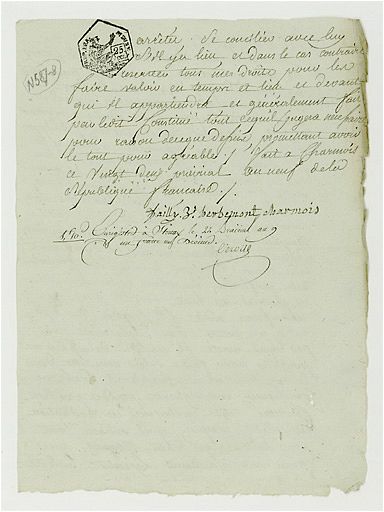 N587-8
25
arrêter. Se concilier avec luy
S'il y a lieu, et dans le cas contraire
tous mes droits pour les
faire valoir en temps et lieu et devant
qui il appartiendra et généralement faire
par ledit Constitué tout ce qu'il jugera nécessaire
pour raison de ce que dessus, promettant avoir
le tout pour agréable ./. fait à Charmois
ce Vingt deux prairial an neuf de la
République française ./.
herbemont Charmois
Enregistré à le 22 Prairial an 9
un franc